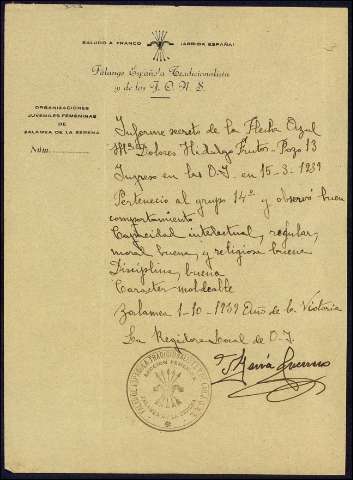 SALUDO A FRANCO ¡ARRIBA ESPAÑA!
Falange Española Tradicionalista
y de las J. O. N. S.
ORGANIZACIONES
JUVENILES FEMENINAS
DE
ZALAMEA DE LA SERENA
Núm.
Informe secreto de la Flecha Azul
Mª Dolores Hidalgo Frutos - Pozo 13
Ingreso en las O.J. en 15-3-1939
Perteneció al grupo 14º y observó buen
comportamiento
Capacidad intelectual, regular,
moral buena, y religiosa buena
Disciplina, buena
Caracter moldeable
Zalamea 1-10-1939 Año de la Victoria
La Regidora Local de O.J.
FALANGE ESPAÑOLA TRADICIONALISTA Y DE LAS J.O.N.S.
SECCION FEMENINA
ZALAMEA DE LA SERENA